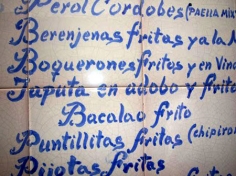 Perol Cordobes (PAELLA MIX
Berenjenas fritas y a la
Boquerones fritos y en Vin
Japuta en adobo y frito
Bacalao frito
Puntillitas fritas (chipiro
Pijotas fritas